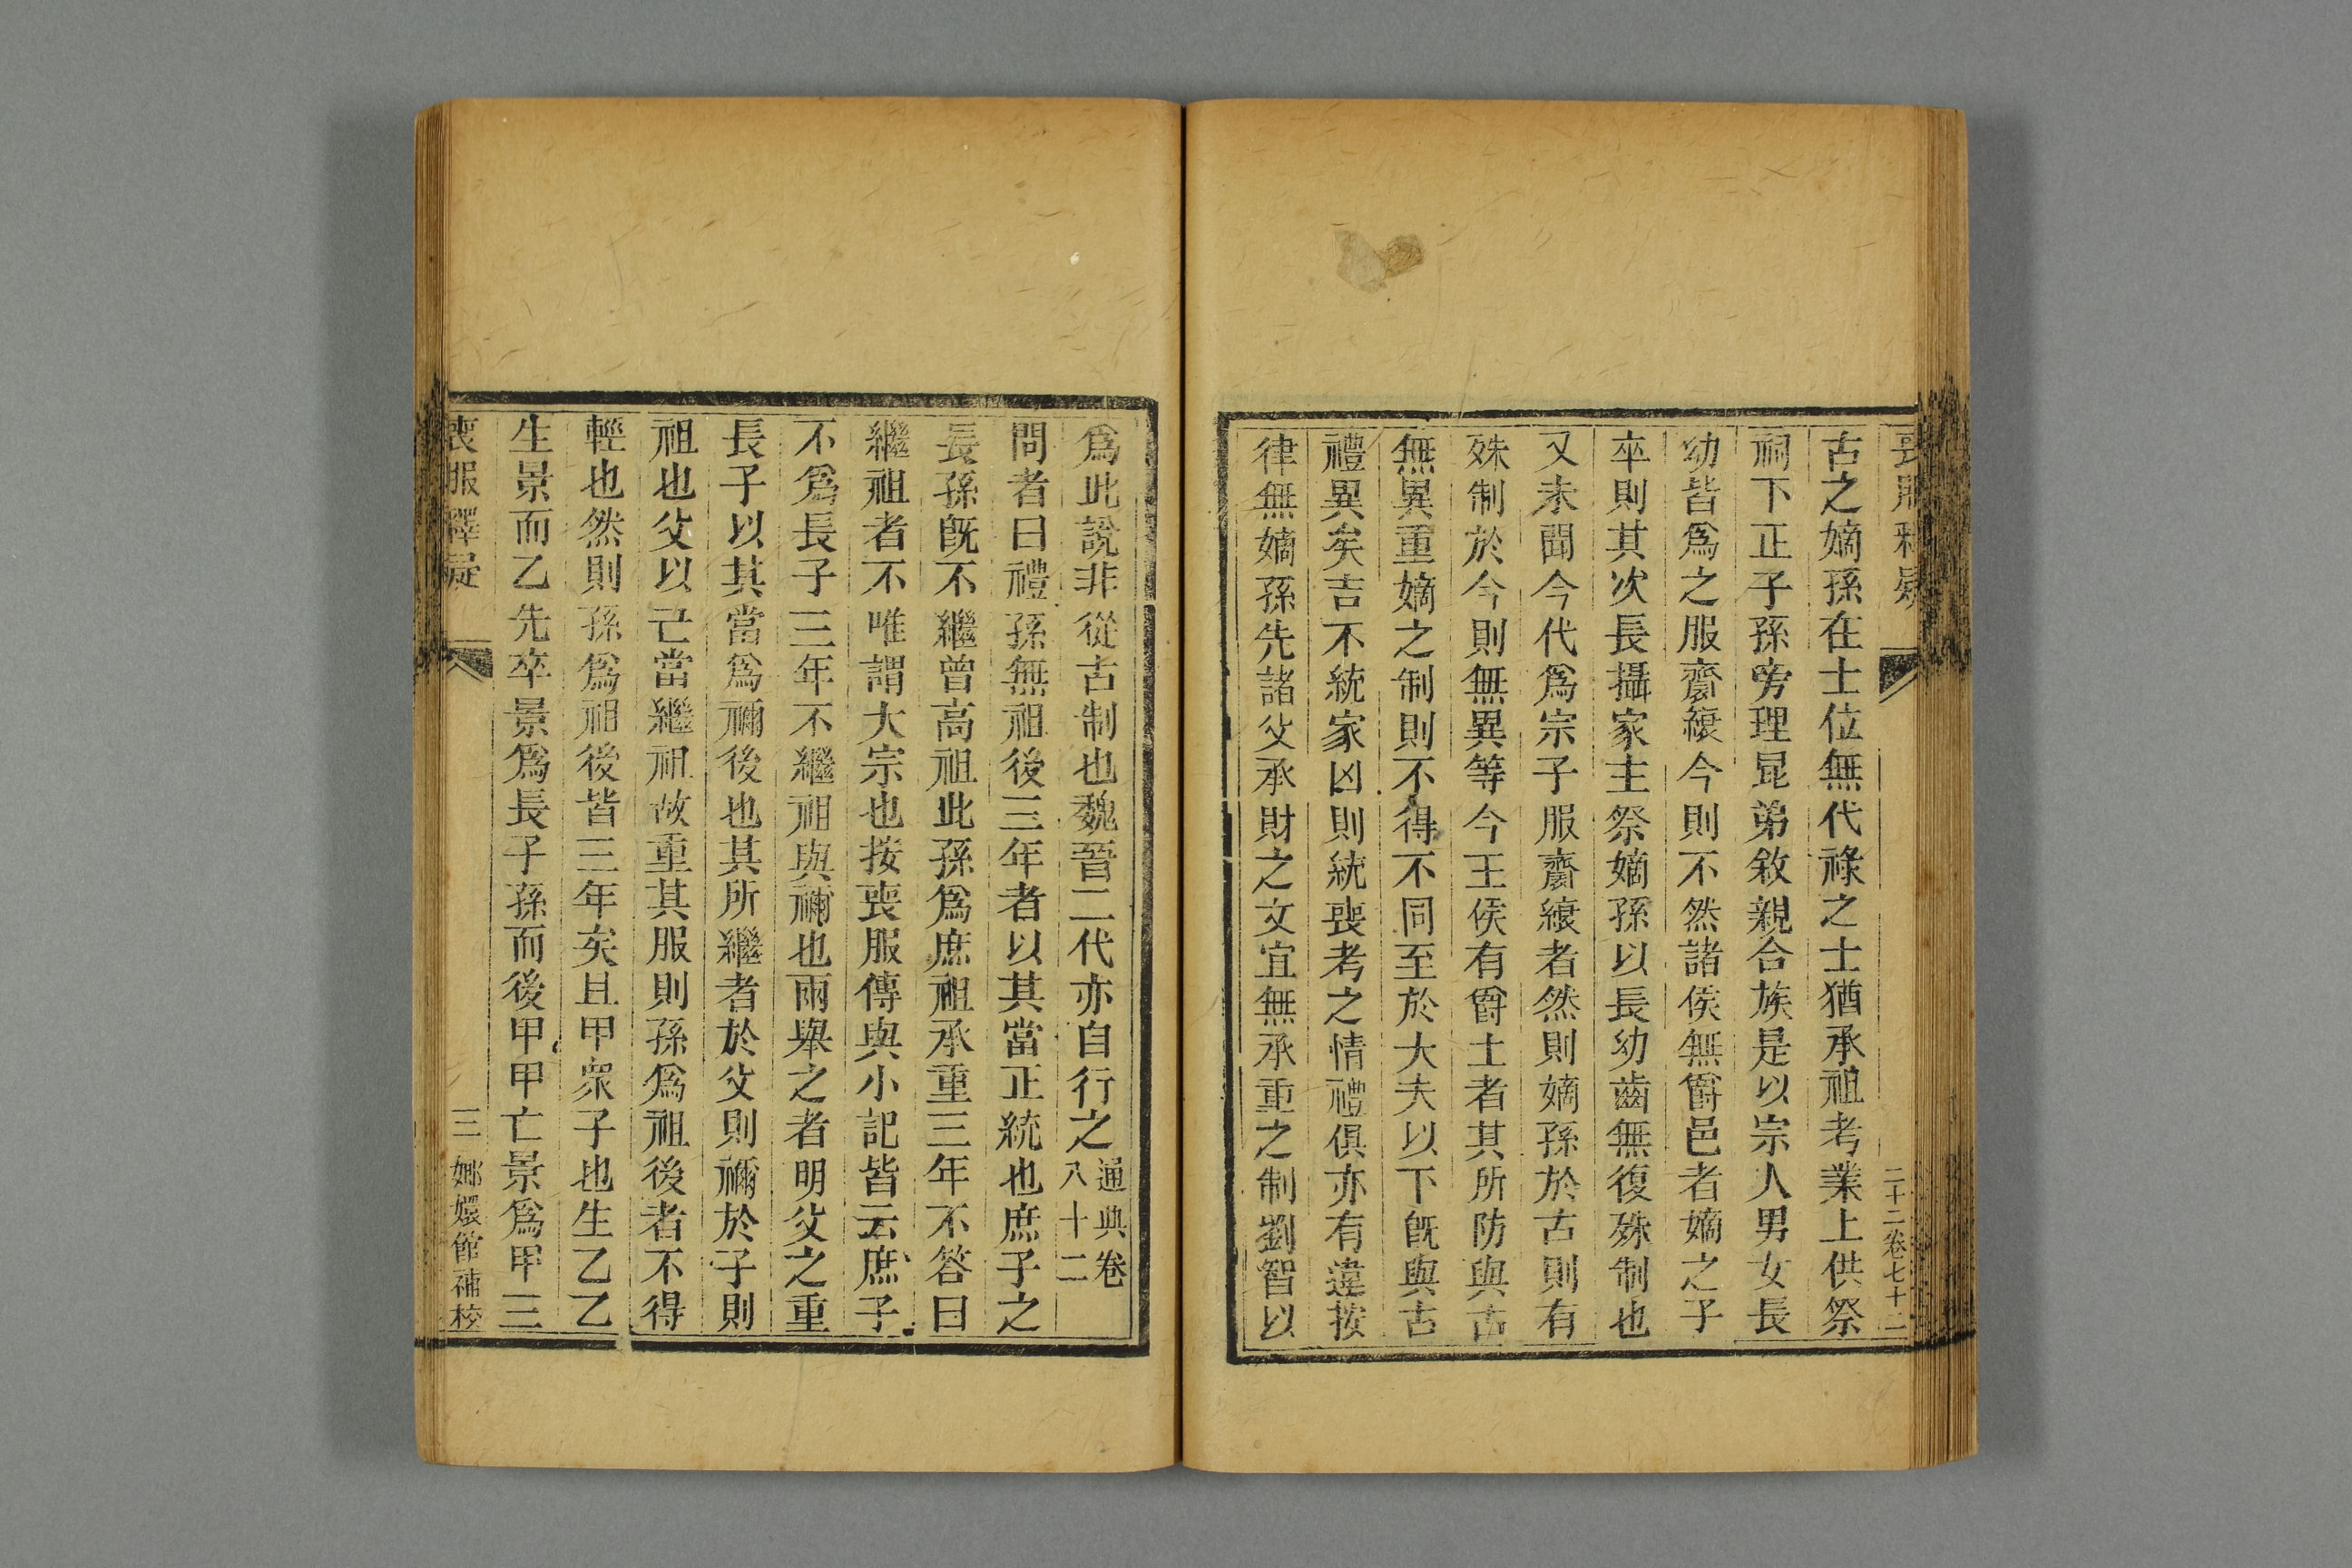 喪服釋疑
二十二卷七十二
古之嫡孫在士位無代祿之士猶承祖考業上供祭
祠下正子孫旁理昆弟敘親合族是以宗人男女長
幼皆爲之服齋縗今則不然諸侯無爵邑者嫡之子
卒則其次長攝家主祭嫡孫以長幼齒無復殊制也
又未聞今代爲宗子服齋縗者然則嫡孫於古則有
殊制於今則無異等今王侯有爵土者其所防與古
無異重嫡之制則不得不同至於大夫以下旣與古
禮異矣吉不統家凶則統喪考之情禮俱亦有違按
律無嫡孫先諸父承財之文宜無承重之制劉智以
爲此說非從古制也魏晉二代亦自行之通典卷八十二
問者曰禮孫無祖後三年者以其當正統也庶子之
長孫旣不繼曾高祖此孫爲庶祖承重三年不答曰
繼祖者不唯謂大宗也按喪服傳與小記皆云庶子
不爲長子三年不繼祖與禰也兩舉之者明父之重
長子以其當爲禰後也其所繼者於父則禰於子則
祖也父以己當繼祖故重其服則孫爲祖後者不得
輕也然則孫爲祖後皆三年矣且甲衆子也生乙乙
生景而乙先卒景爲長子孫而後甲甲亡景爲甲三
喪服釋疑
三
嫏嬛館補校